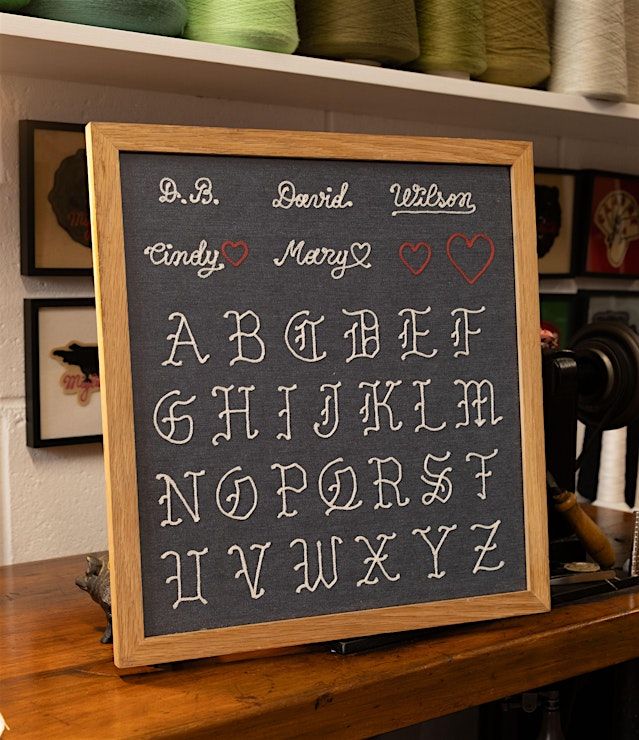 D.B. David Wilson
Cindy Mary
A B C D E F
G H I J K L M
N O P Q R S T
U V W X Y Z